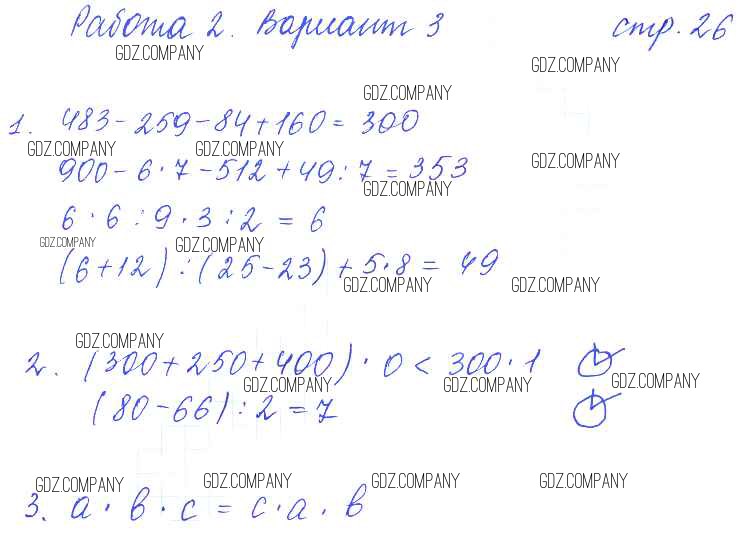 Работа 2. Вариант 3 стр. 26
GDZ.COMPANY
GDZ.COMPANY
GDZ.COMPANY
1. 483 - 259 - 84 + 160 = 300
GDZ.COMPANY GDZ.COMPANY
GDZ.COMPANY
900 - 6 · 7 - 512 + 49 : 7 = 353
GDZ.COMPANY
6 · 6 : 9 · 3 : 2 = 6
GDZ.COMPANY GDZ.COMPANY
(6 + 12) : (25 - 23) + 5 · 8 = 49
GDZ.COMPANY GDZ.COMPANY
GDZ.COMPANY
2. (300 + 250 + 400) · 0 < 300 · 1
GDZ.COMPANY GDZ.COMPANY GDZ.COMPANY
(80 - 66) : 2 = 7
GDZ.COMPANY GDZ.COMPANY GDZ.COMPANY GDZ.COMPANY
3. а · в · с = с · а · в